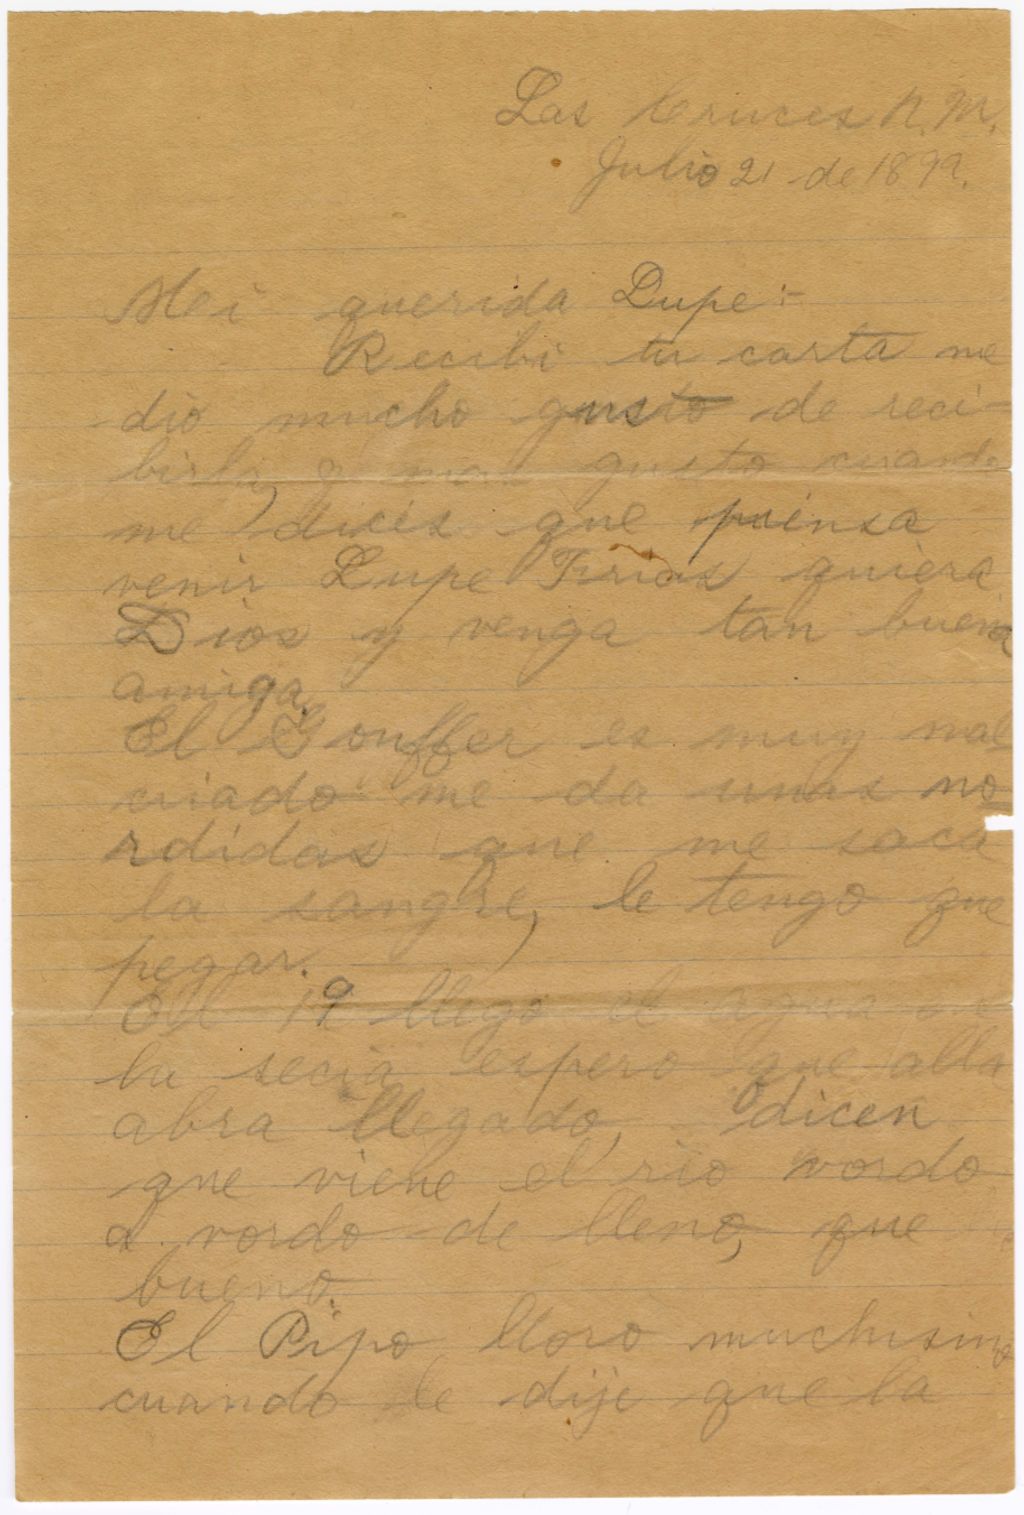 Las Cruces N. M.
Julio 21 de 1899.
Mi querida Lupe:-
Recibi tu carta me
dio mucho gusto de reci-
birla, y mas gusto cuando
me dices que piensa
venir Lupe Frias quiera
Dios y venga tan buena
amiga.
El Gouffer es muy mal
criado me da unas mo
rdidas que me saca
la sangre, le tengo que
pegar.
El 19 llego el agua en
lu secia espero que alla
abra llegado, dicen
que viene el rio vordo
a vordo de lleno, que
bueno.
El Pipo lloro muchisimo
cuando le dije que la